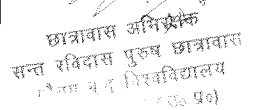 छात्रावास अभिरक्षक
सन्त रविदास पुरुष छात्रावास
विश्वविद्यालय
प्र०)